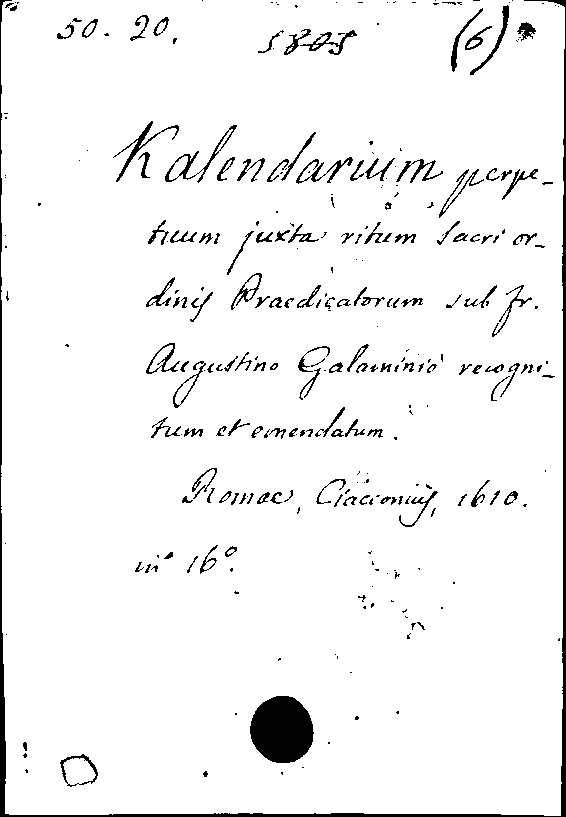 50. 20. 5805 (6)
Kalendarium perpe-
tuum juxta ritum sacri or-
dinis Praedicatorum sub fr.
Augustino Galaminio recogni-
tum et emendatum.
Romae, Ciacconius, 1610.
in 16º.